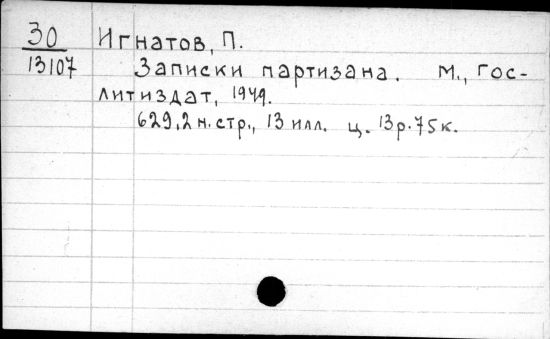 30
13107
Игнатов, П.
Записки партизана. М., Гос-
литиздат, 1949.
629,2 н. стр., 13 илл. ц. 13р.75к.